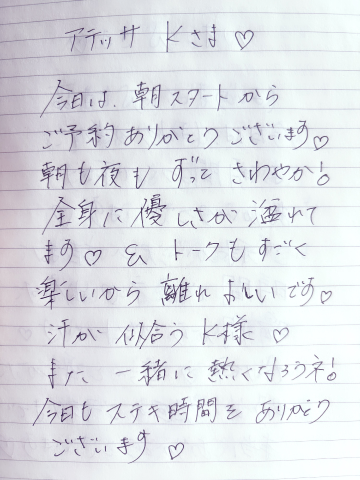 アテッサ Kさま♡
今日は、朝スタートから
ご予約ありがとうございます♡
朝も夜も ずっと さわやか!
全身に優しさが 溢れて
ます♡ & トークもすごく
楽しいから 離れ おしいです♡
汗が 似合う K様 ♡
また 一緒に 熱くなろうネ!
今日も ステキ時間を ありがとう
ございます ♡